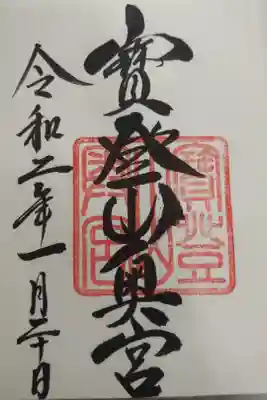 寳登山奥宮
令和二年一月二十日